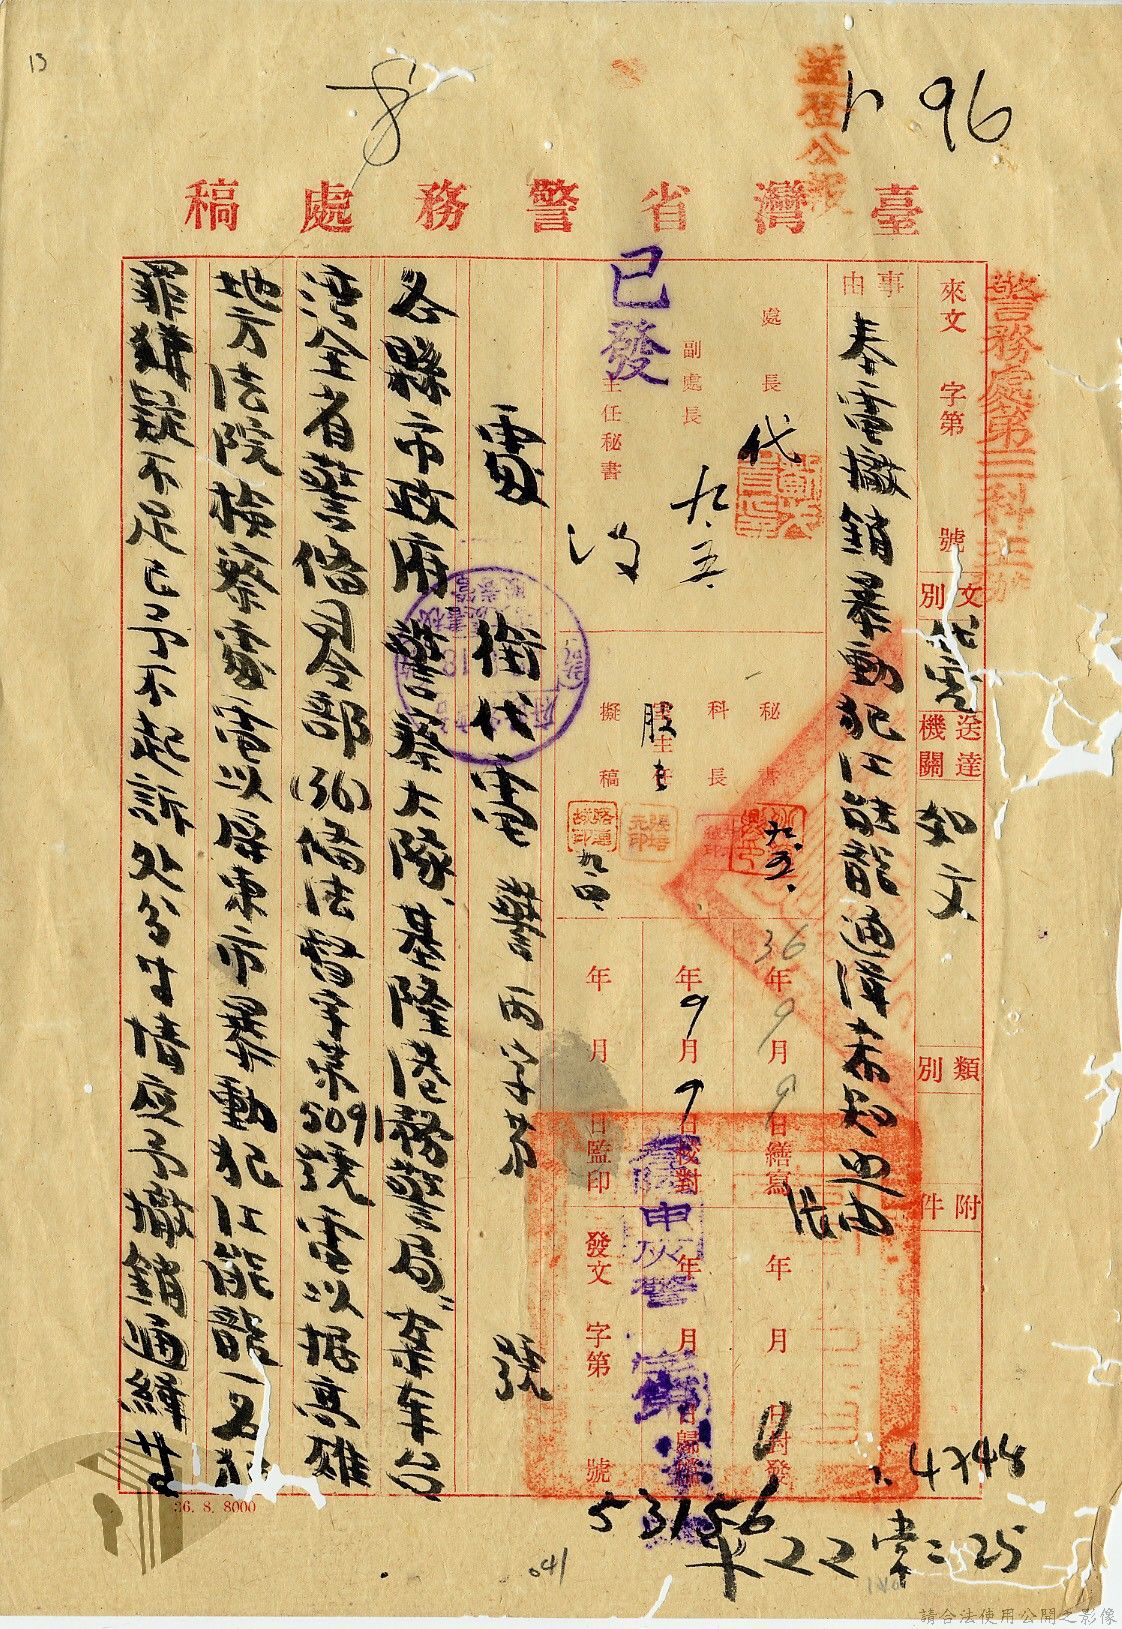 13
8
卜 96
送登公報
臺灣省警務處稿
警務處第三科主辦
來文 字第 號
文別 代電
送達機關 如文
類別
附件
事由
奉電撤銷暴動犯江能龍通緝希知照由
處長 代
副處長 九.五.
主任秘書
已發
秘書 九.五.
科長
股主任 股長
擬稿 九.四.
36年9月9日繕寫
年9月9日校對
年 月 日監印
年 月 日封發
年 月 日歸檔
發文 字第 號
申灰警
53156
處銜代電 警丙字第 號
各縣市政府、警察大隊、基隆港務警局:案奉台
灣全省警備司令部(36)備法督字第5091號電以據高雄
地方法院檢察處電以屏東市暴動犯江能龍一名犯
罪嫌疑不足已予不起訴處分等情應予撤銷通緝等
36. 8. 8000
041
請合法使用公開之影像